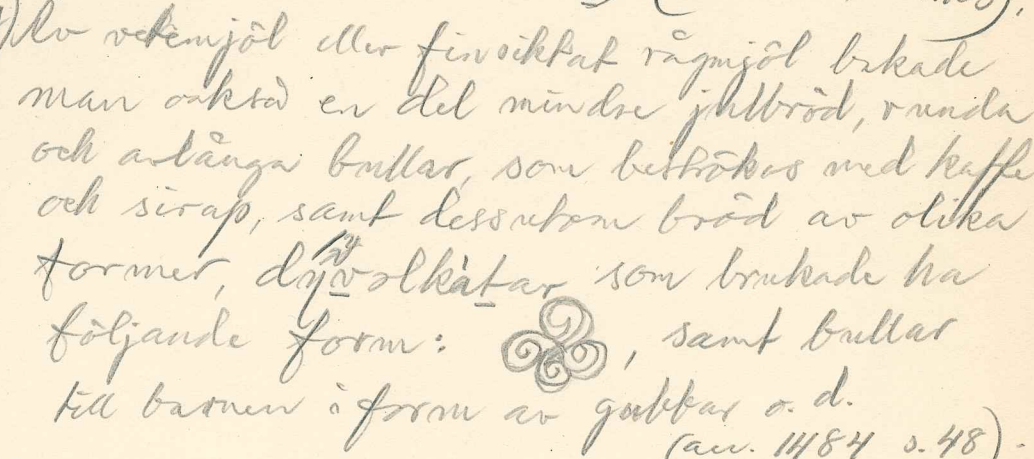 Av vetemjöl eller finsiktat rågmjöl bakade
man också en del mindre julbröd, runda
och avlånga bullar, som beströkos med kaffe
och sirap, samt dessutom bröd av olika
former, som brukade ha
följande form: , samt bullar
till barnen i form av gubbar o. d.
(acc. 1484 s. 48).